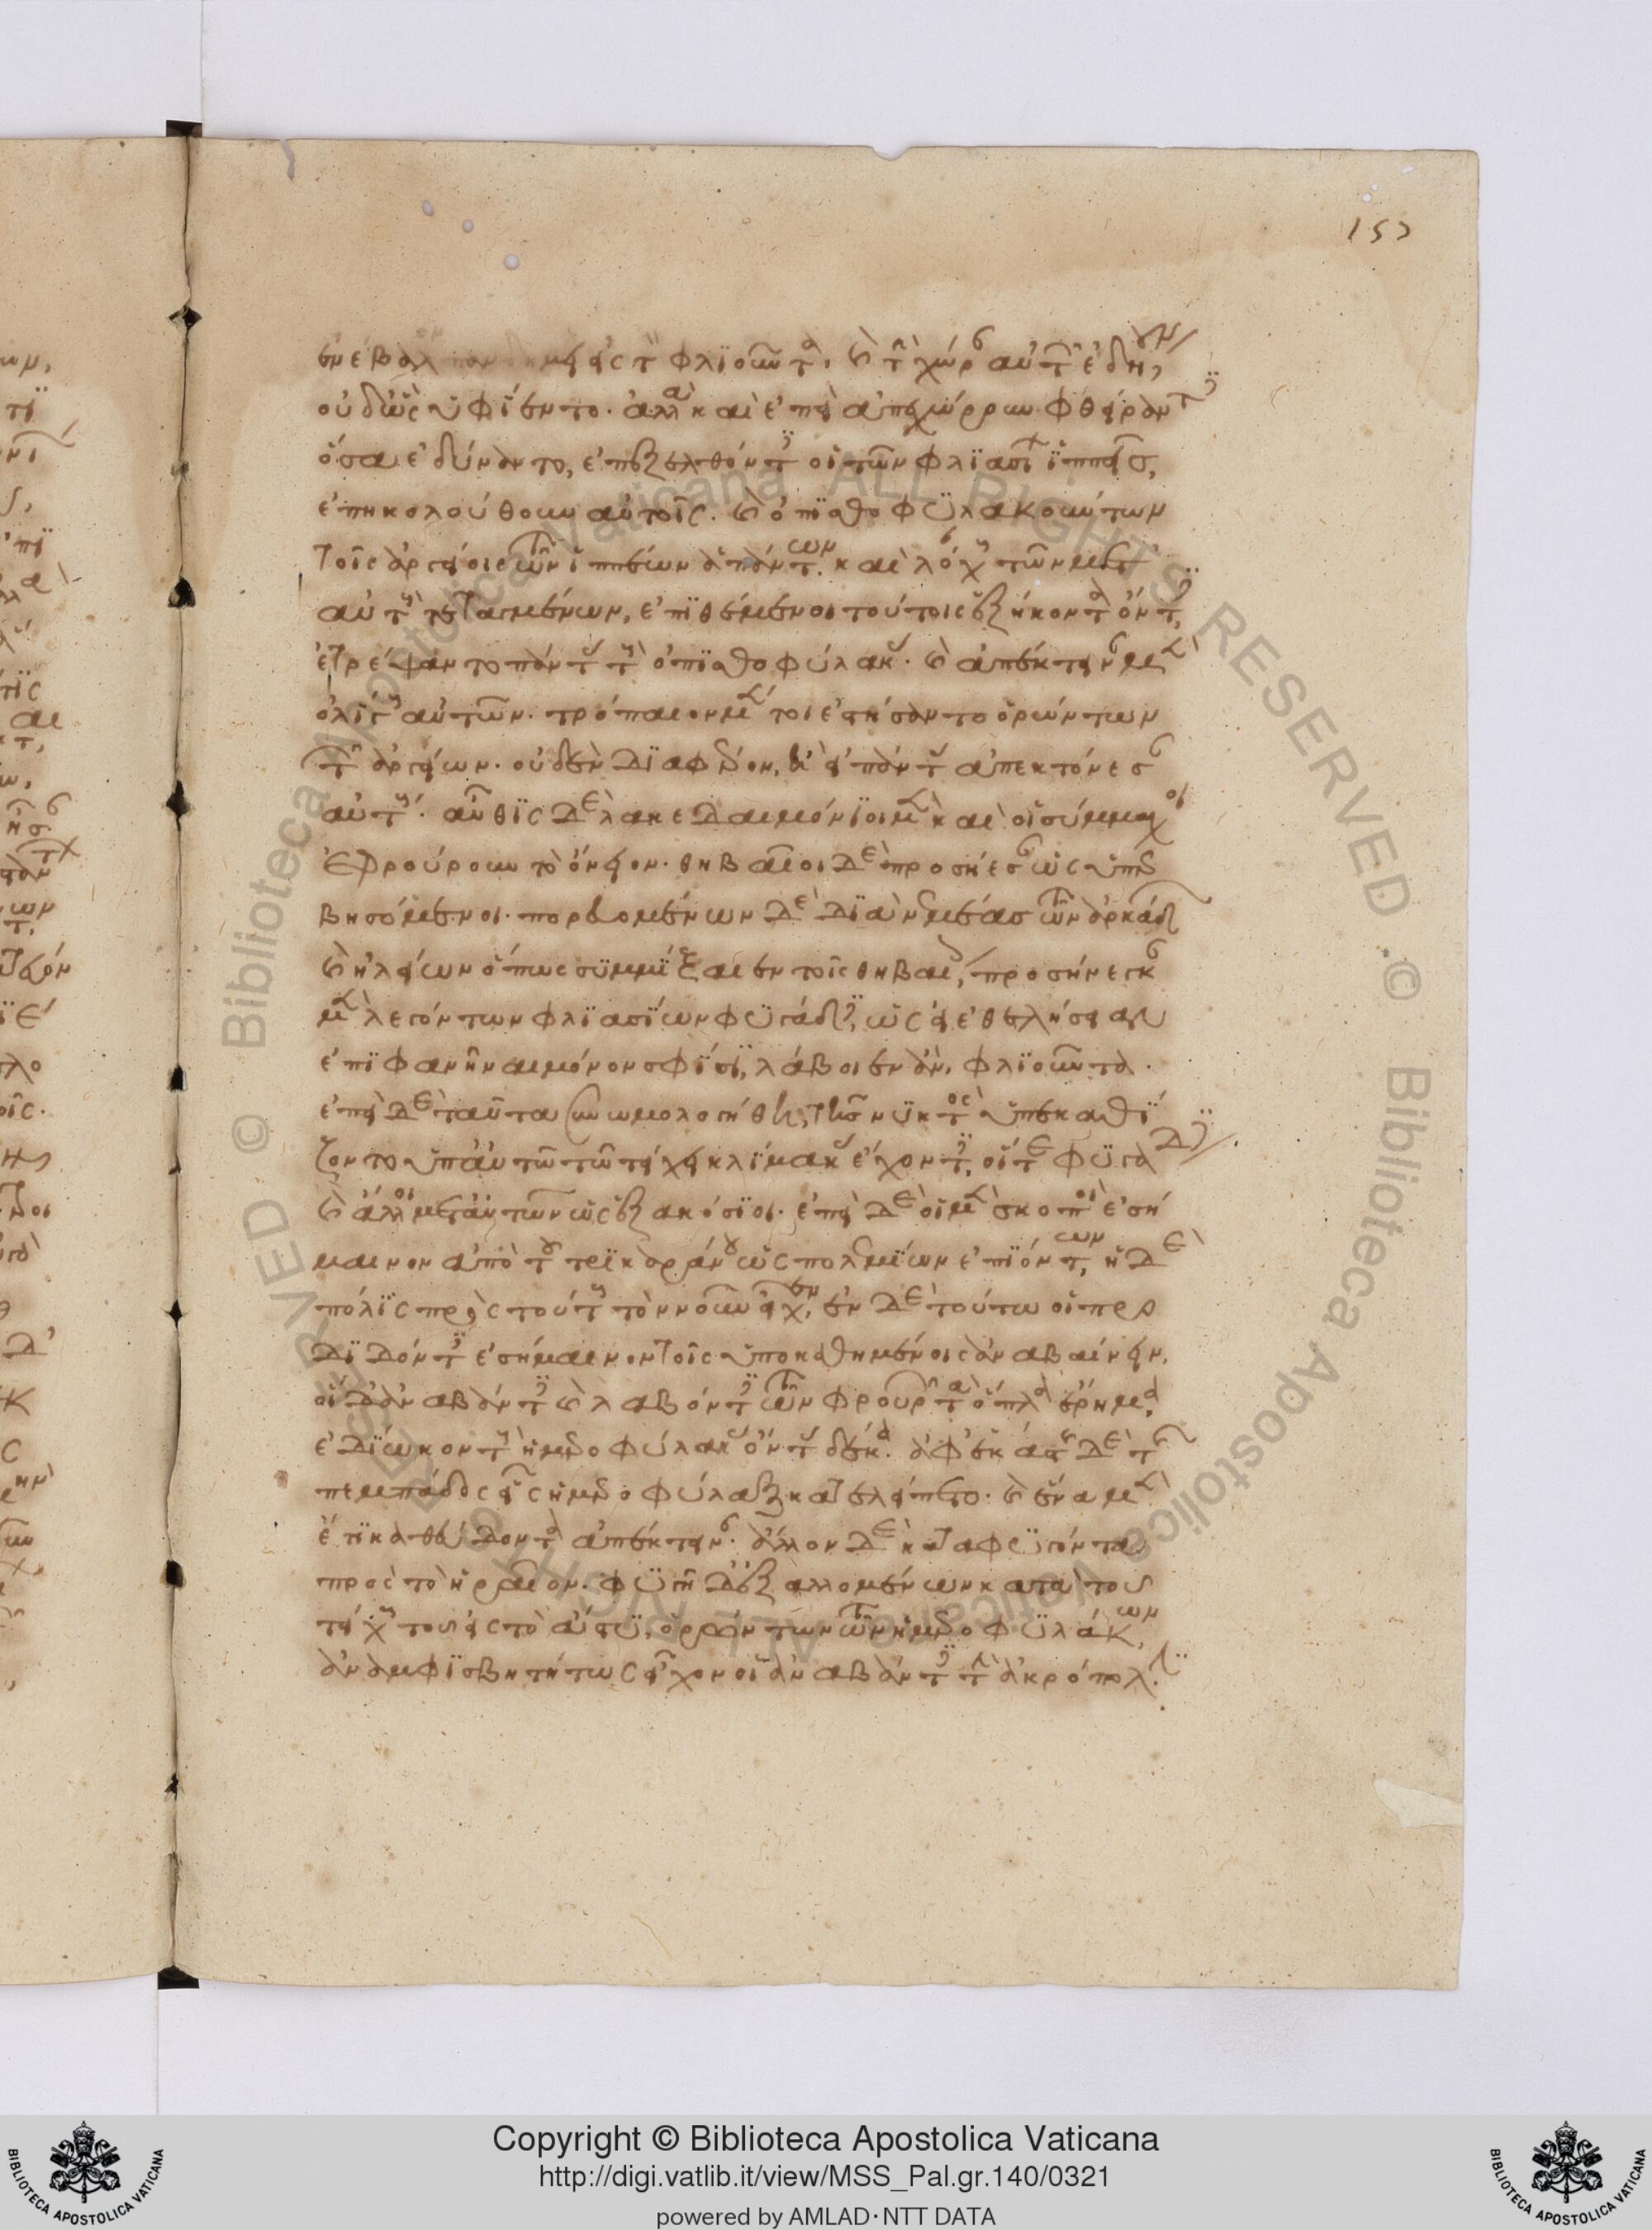 153
ἐνέβαλον πανδημεὶ εἰς τὸν φλιοῦντα, καὶ τὴν χώραν αὐτῶν ἐδῄουν,
οὐδ' ὣς ὑφίεντο. ἀλλὰ καὶ ἐπεὶ ἀπεχώρουν φθείραντες
ὅσα ἐδύναντο, ἐπεξελθόντες οἱ τῶν φλιασίων ἱππεῖς,
ἐπηκολούθουν αὐτοῖς. καὶ ὀπισθοφυλακούντων
τοῖς ἀργείοις τῶν ἱππέων ἁπάντων καὶ λόχων τῶν μετ'
αὐτοὺς τεταγμένων, ἐπιθέμενοι τούτοις ἑξήκοντα ὄντες,
ἐτρέψαντο πάντας τοὺς ὀπισθοφύλακας. καὶ ἀπέκτειναν μὲν
ὀλίγους αὐτῶν. τρόπαιον μέντοι ἐστήσαντο ὁρώντων
τῶν ἀργείων. οὐδὲν διαφέρον, ἢ εἰ πάντας ἀπεκτόνεσαν
αὐτούς. αὖθις δὲ λακεδαιμόνιοι μὲν καὶ οἱ σύμμαχοι
ἐφρούρουν τὸ ὄνειον. θηβαῖοι δὲ προσῄεσαν ὡς ὑπερ
βησόμενοι. πορευομένων δὲ διὰ νεμέας τῶν ἀρκάδων
καὶ ἠλείων ὅπως συμμίξαιεν τοῖς θηβαίοις, προσήνεγκαν
μὲν λέγον των φλιασίων φυγάδες, ὡς εἰ ἐθελήσειαν
ἐπιφανῆναι μόνον σφίσι, λάβοιεν ἂν φλιοῦντα.
ἐπεὶ δὲ ταῦτα συνωμολογήθη, τῆς νυκτὸς ὑπεκαθί
ζοντο ὑπ' αὐτῷ τῷ τείχει κλίμακας ἔχοντες, οἵ τε φυγάδες
καὶ ἄλλοι μετ' αὐτῶν ὡς ἑξακόσιοι. ἐπεὶ δὲ οἱ μὲν σκοποὶ ἐσή
μαινον ἀπὸ τοῦ τρικαράνου ὡς πολεμίων ἐπιόντων, ἡ δὲ
πόλις πρὸς τούτους τὸν νοῦν εἶχεν, ἐν δὲ τούτῳ οἱ προ
διδόντες ἐσήμαινον τοῖς ὑποκαθημένοις ἀναβαίνειν.
οἱ δ' ἀναβάντες καὶ λαβόντες τῶν φρουρῶν τὰ ὅπλα ἔρημα,
ἐδίωκον τοὺς ἡμεροφύλακας ὄντας δέκα. ἀφ' ἑκάστης δὲ τῆς
πεμπάδος εἷς ἡμεροφύλαξ κατελείπετο. καὶ ἕνα μὲν
ἔτι καθεύδοντα ἀπέκτειναν. ἄλλον δὲ καταφυγόντα
πρὸς τὸ ἡραῖον. φυγῇ δ' ἐξαλλομένων κατὰ τοῦ
τείχους τοῦ εἰς τὸ ἄστυ, ὁρῶν των τῶν ἡμεροφυλάκων,
ἀναμφισβητήτως εἶχον οἱ ἀναβάντες τὴν ἀκρόπολιν.
Copyright © Biblioteca Apostolica Vaticana
http://digi.vatlib.it/view/MSS_Pal.gr.140/0321
powered by AMLAD·NTT DATA